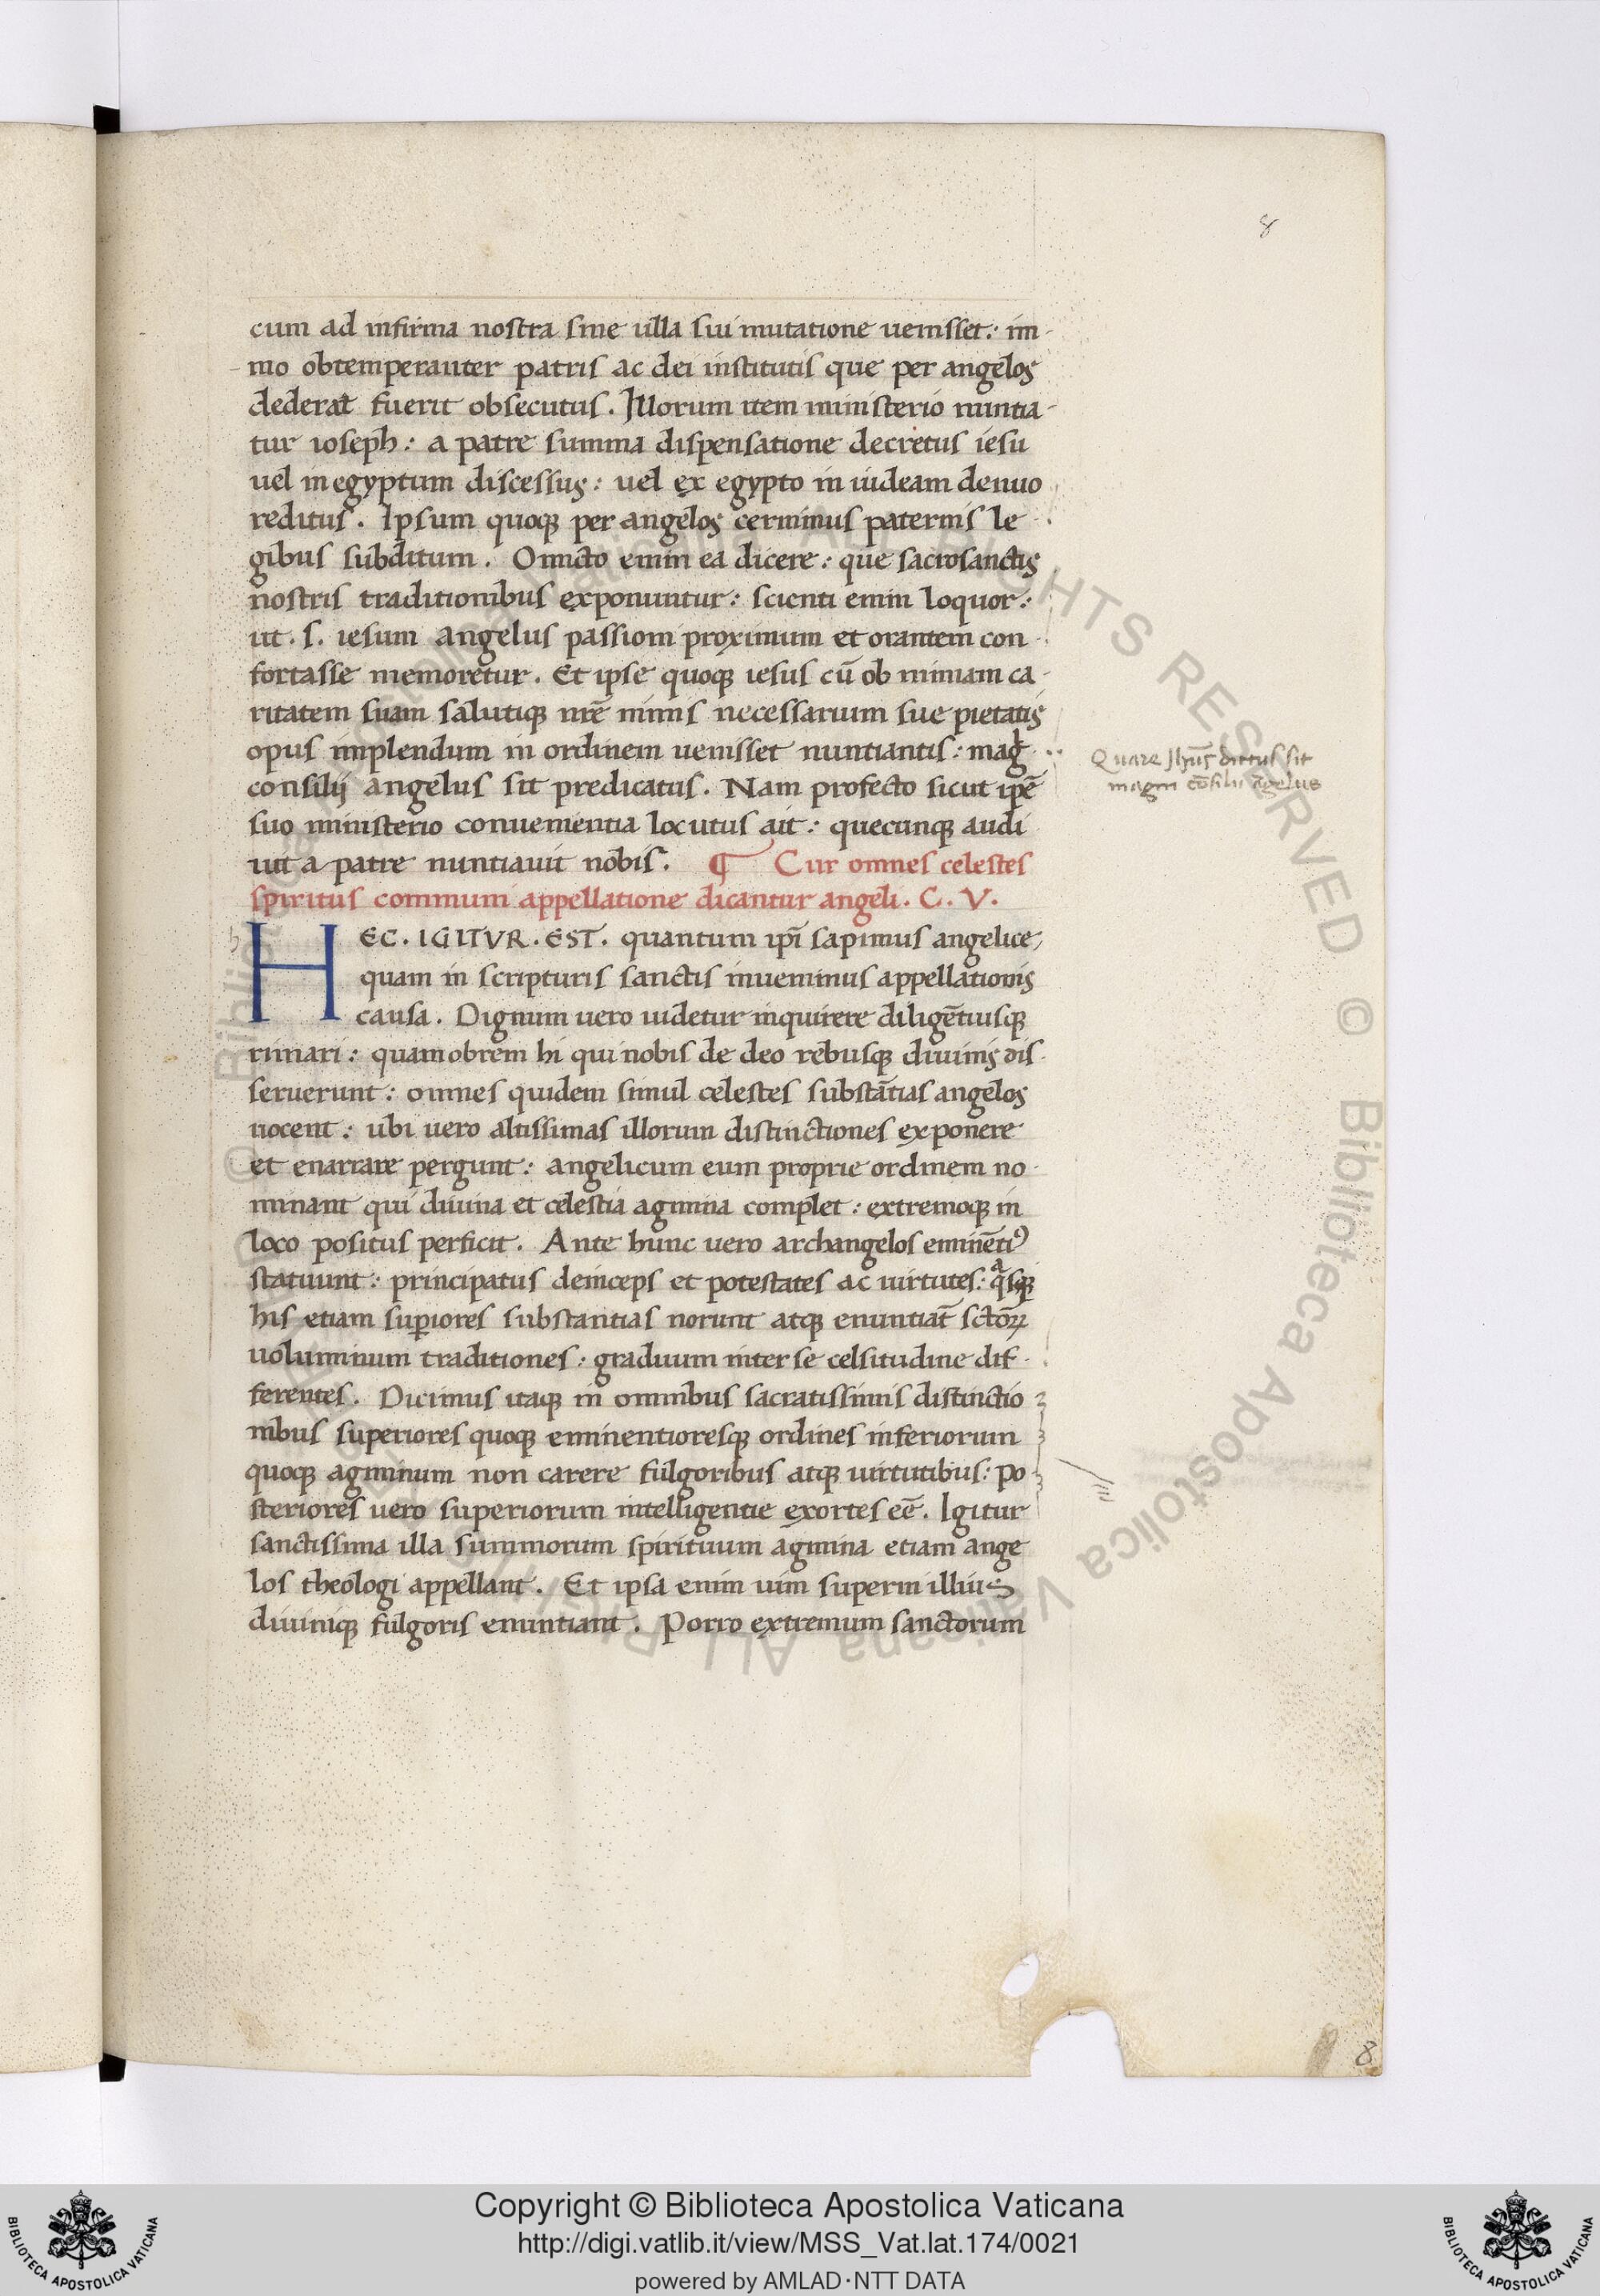 8
cum ad infirma nostra sine ulla sui mutatione uenisset: im
mo obtemperanter patris ac dei institutis que per angelos
dederat fuerit obsecutus. Illorum item ministerio nuntia
tur ioseph: a patre summa dispensatione decretus iesu
uel in egyptum discessus: uel ex egypto in iudeam denuo
reditus. Ipsum quoqꝫ per angelos cernimus paternis le
gibus subditum. Omicto enim ea dicere: que sacrosanctis
nostris traditionibus exponuntur: scienti enim loquor:
ut .s. iesum angelus passioni proximum et orantem con
fortasse memoretur. Et ipse quoqꝫ iesus cū ob nimiam ca
ritatem suam salutiqꝫ nr̄e nimis necessarium sue pietatis
opus implendum in ordinem uenisset nuntiantis: mag
consilij angelus sit predicatus. Nam profecto sicut ip̄e
suo ministerio conuenientia locutus ait: quecunqꝫ audi
uit a patre nuntiauit nobis. ¶ Cur omnes celestes
spiritus communi appellatione dicantur angeli. C. V.
HEC. IGITVR. EST. quantum ip̄i sapimus angelice
quam in scripturis sanctis inuenimus appellationis
causa. Dignum uero uidetur inquirere diligēt̄iusqꝫ
rimari: quamobrem hi qui nobis de deo rebusqꝫ diuinis dis
seruerunt: omnes quidem simul celestes substātias angelos
uocent: ubi uero altissimas illorum distinctiones exponere
et enarrare pergunt: angelicum eum proprie ordinem no
minant qui diuina et celestia agmina complet: extremoqꝫ in
loco positus perficit. Ante hunc uero archangelos eminētiꝰ
statuunt: principatus deinceps et potestates ac uirtutes: qᵃsqꝫ
his etiam superiores substantias norunt atqꝫ enuntiāt sctōꝝ
uoluminum traditiones: graduum inter se celsitudine dif
ferentes. Dicimus itaqꝫ in omnibus sacratissimis distinctio
nibus superiores quoqꝫ eminentioresqꝫ ordines inferiorum
quoqꝫ agminum non carere fulgoribus atqꝫ uirtutibus: po
steriores uero superiorum intelligentie exortes eē. Igitur
sanctissima illa summorum spirituum agmina etiam ange
los theologi appellant. Et ipsa enim uim superni illius
diuiniqꝫ fulgoris enuntiant. Porro extremum sanctorum
Quare Jhūs dictus sit
magni cōsilii āgelus
8
© Biblioteca Apostolica Vaticana ALL RIGHTS RESERVED
Copyright © Biblioteca Apostolica Vaticana
http://digi.vatlib.it/view/MSS_Vat.lat.174/0021
powered by AMLAD·NTT DATA
BIBLIOTECA APOSTOLICA VATICANA
BIBLIOTECA APOSTOLICA VATICANA